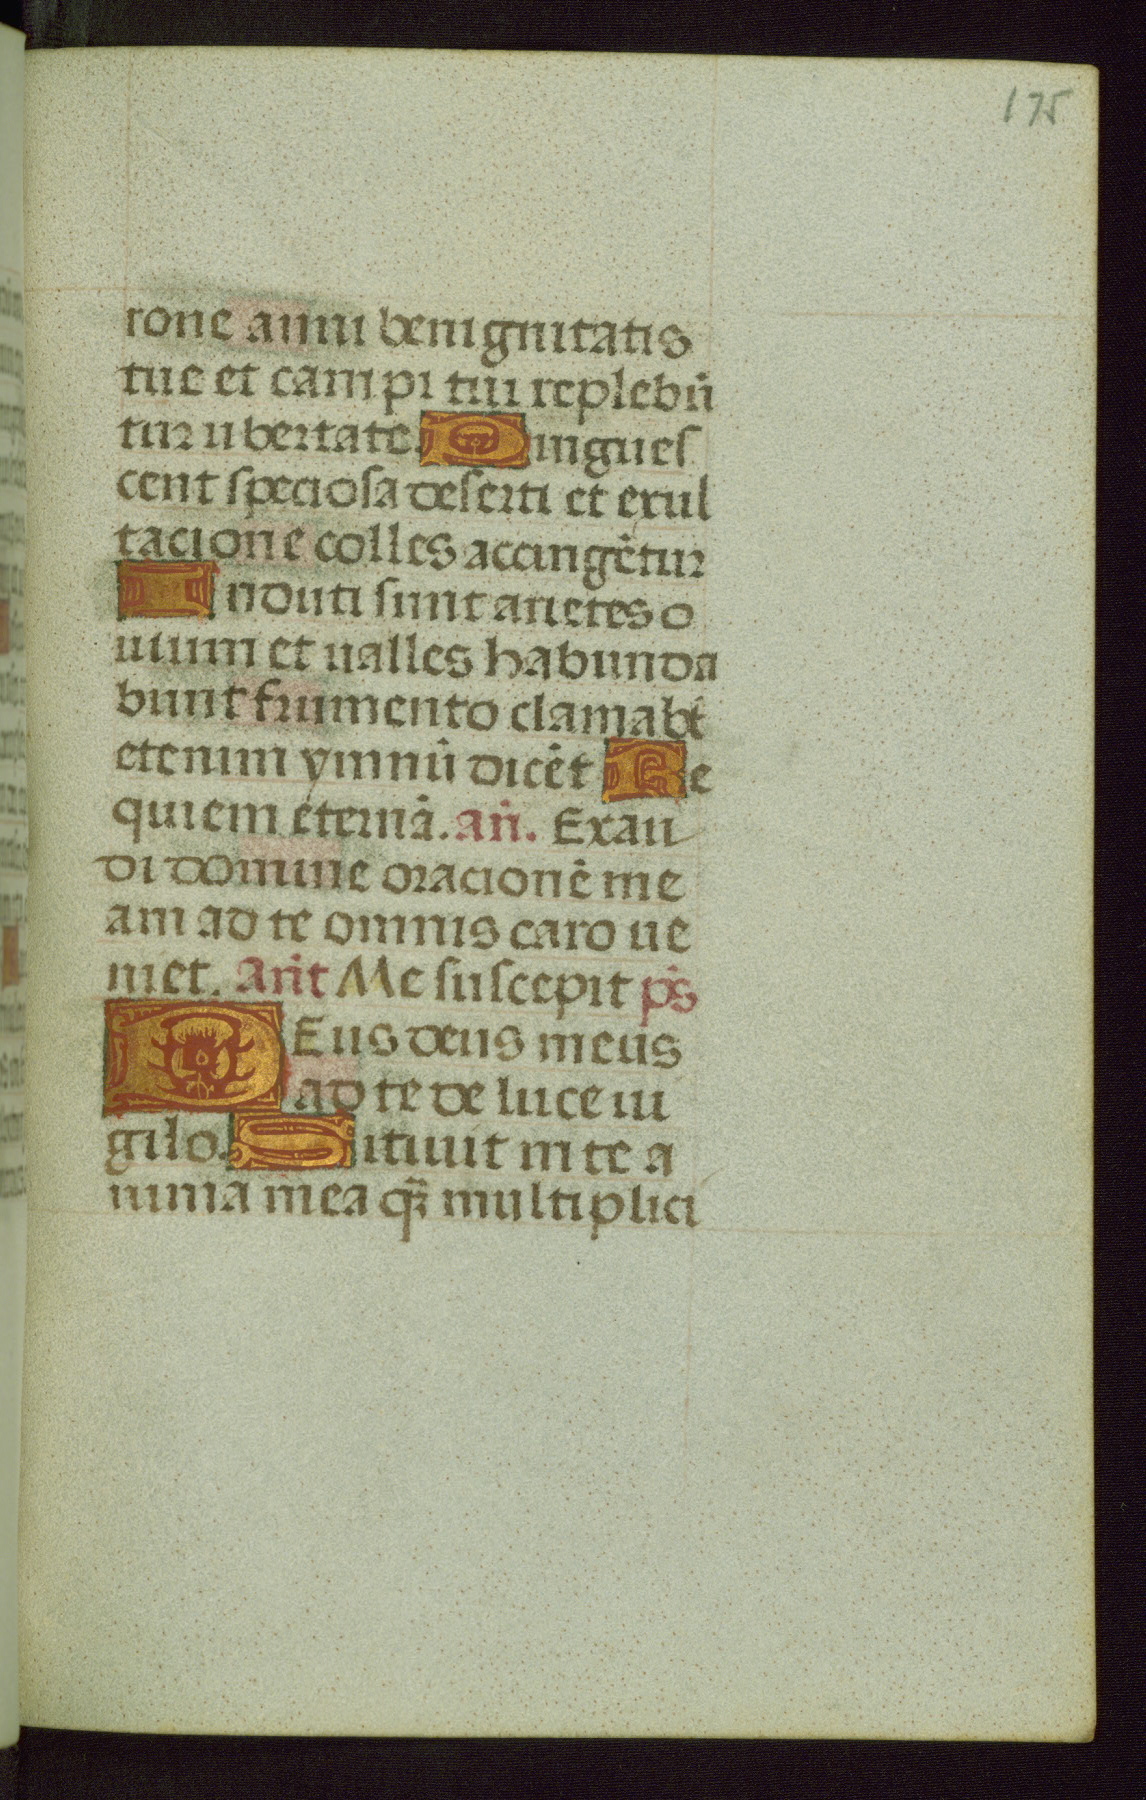 175
rone anni benignitatis
tue et campi tui replebũ
tur ubertate. Pingues
cent speciosa deserti et exul
tacione colles accingẽtur
Induti sunt arietes o
uium et ualles habunda
bunt frumento clamabt̃
etenim ymnũ dicẽt Re
quiem eternã. añ. Exau
di domine oracionẽ me
am ad te omnis caro ue
niet. Añt Me suscepit p̃s
DEus deus meus
ad te de luce ui
gilo. Sitiuit in te a
nima mea qr̃ multiplici